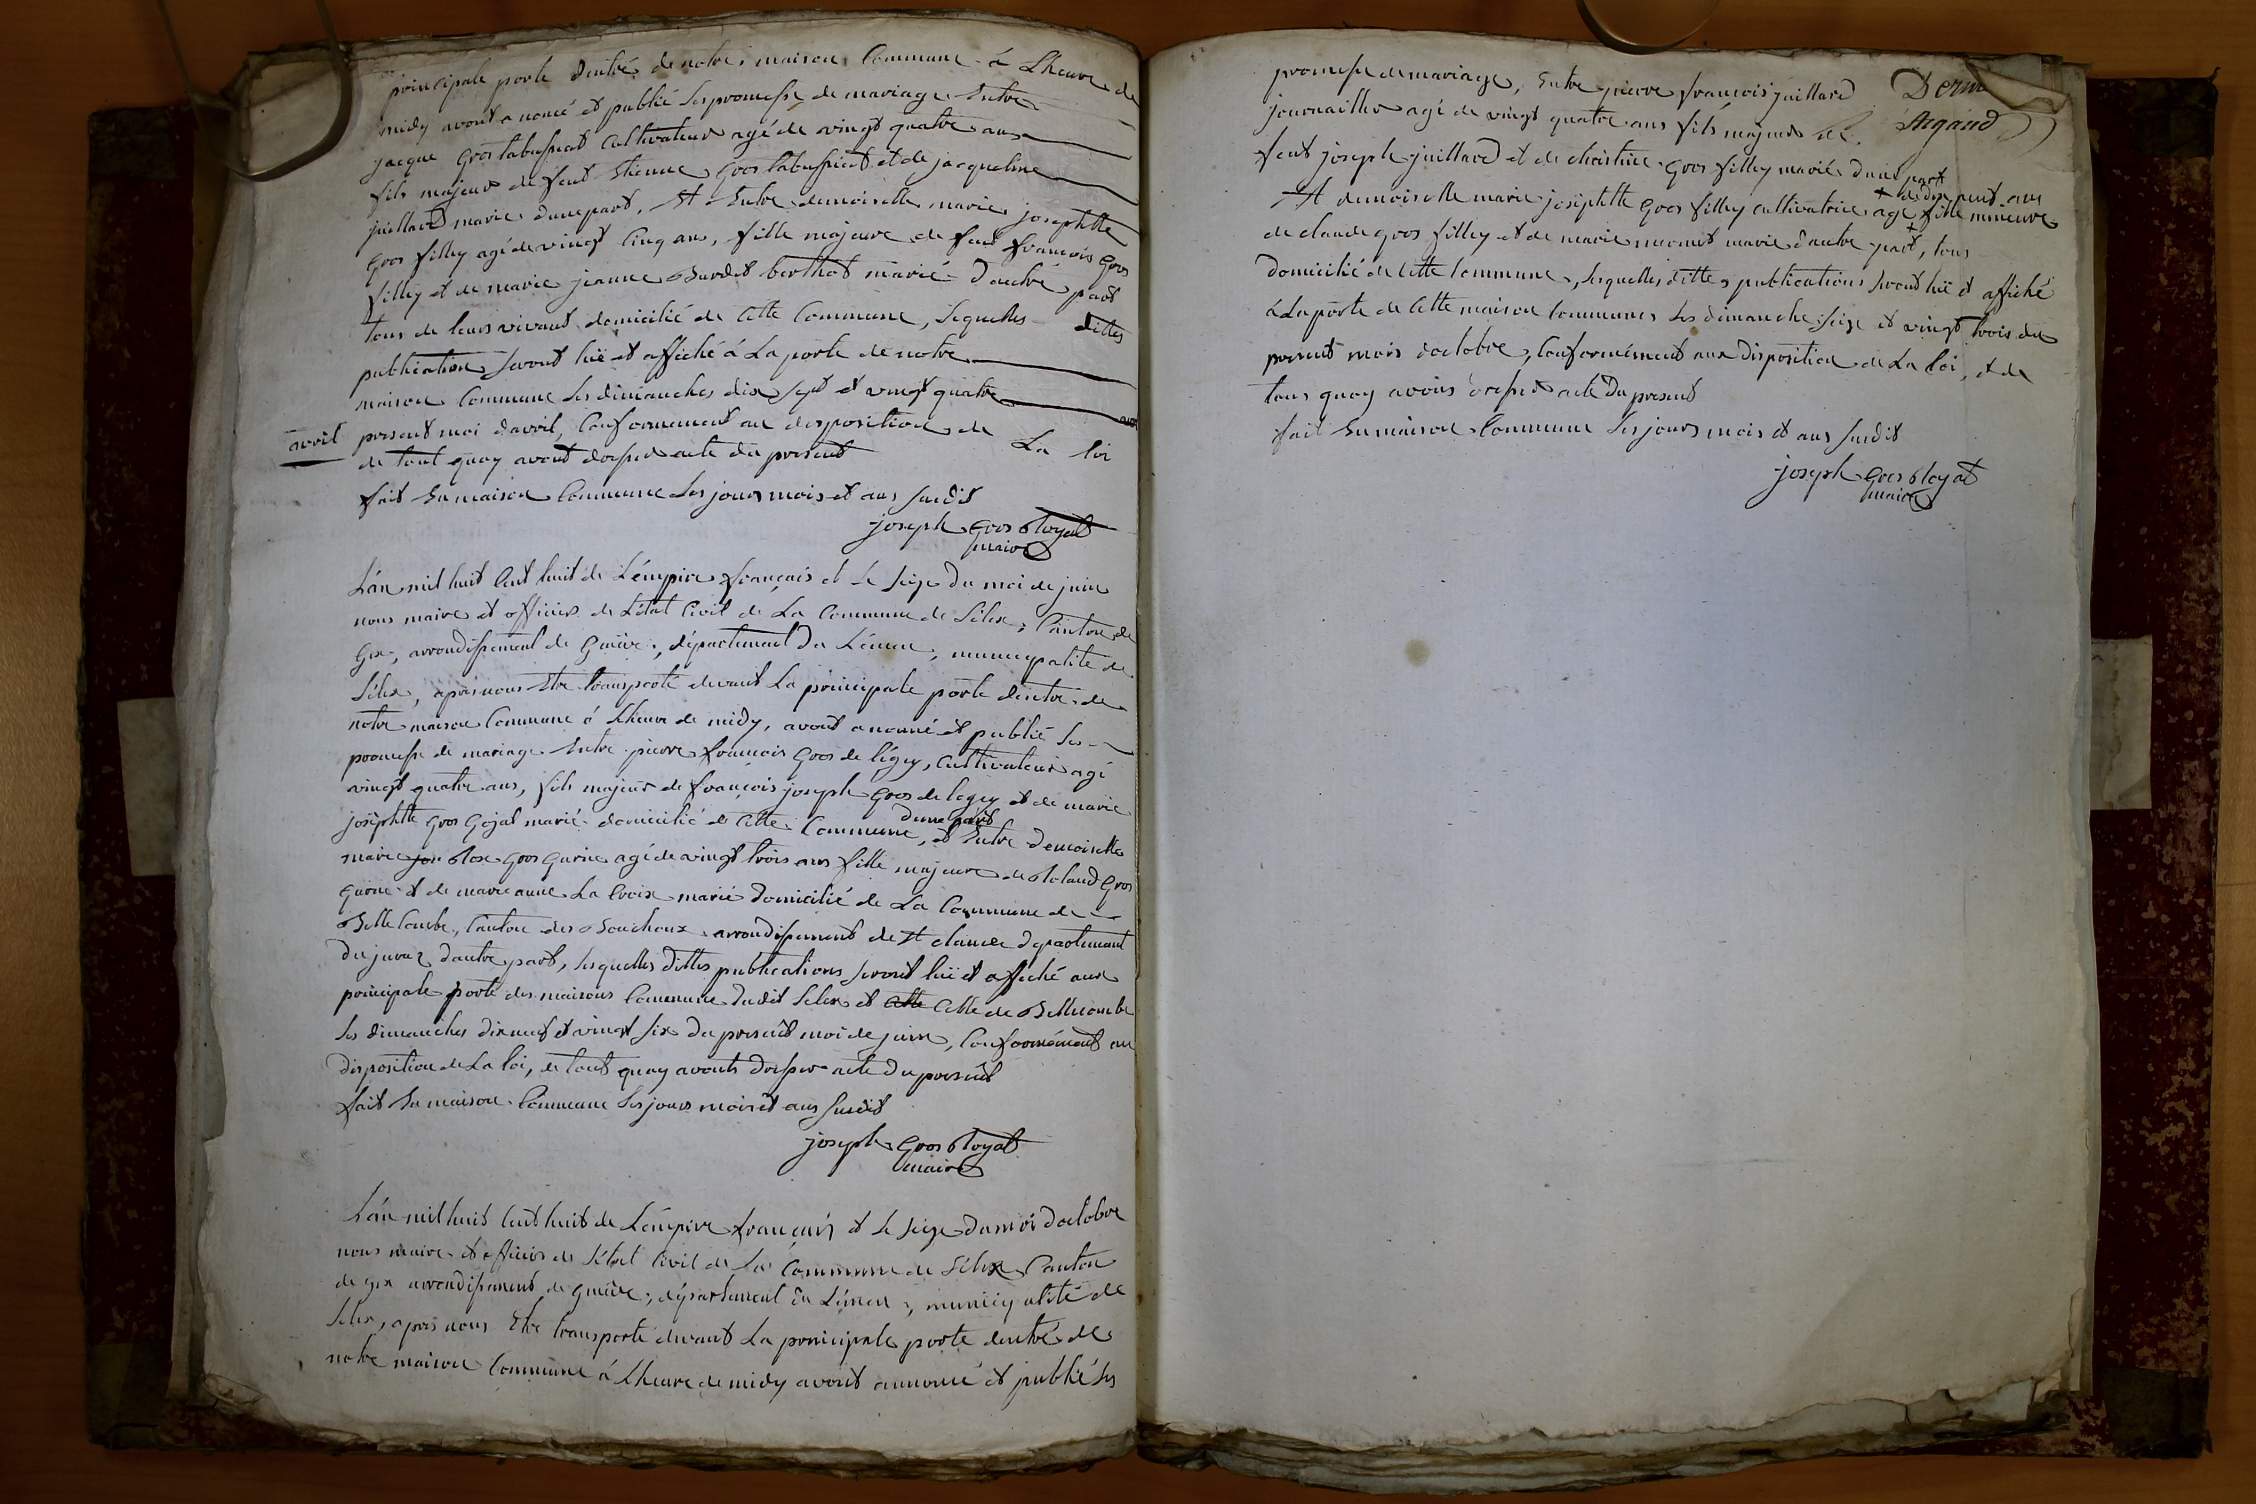 principale porte dentré de notre maison Commune à Lheure de
midy avont anoncé et publié Les promesse de mariage Entre
jacque Gros labussieat Cultivateur agé de vingt quatre ans
fils majeur de feut Etienne Gros labussieat et de jacqueline
juillard marié dune part, Et Entre demoiselle marie josephtte
Gros filley agé de vingt Cinq ans, fille majeure de feut françois Gros
filley et de marie jeanne Burdet berthot marié d'autre part
tous de leurs vivant domicilié de Cette Commune, Lequelles dittes
publication Seront luë et affiché à La porte de notre
maison Commune Les dimanches dix Sept et vingt quatre
avril present moi davril, Conformement au disposition de La loi
de tout quoy avont dressed acte du present
fait En maison Commune Les jours mois et ans Susdit
joseph Gros Royat
maire
L'an mil huit Cent huit de L'empire français et Le Seize du moi de juin
nous maire et officier de L'état Civil de La Commune de Lelex, Canton de
Gex, arrondissement de Genève, département du Léman, municipalité de
Lélex, apres nous Etre transporté devant La principale porte dentré de
notre maison Commune à Lheure de midy, avont anoncé et publié Les
promesse de mariage Entre pierre françois Gros de légey, Cultivateur agé
vingt quatre ans, fils majeur de françois joseph Gros de legey et de marie
josephtte Gros Gojat marié domicilié de Cette Commune, dune part et Entre demoiselle
marie jos Rose Gros Gurine agé de vingt trois ans fille majeure de Roland Gros
Gurine et de marie anne La Croix marié domicilié de La Commune de
Belle Combe, Canton des Bouchoux arrondissement de St claude departement
du jura d'autre part, Lesquelles dittes publications Seront luë et affiché aux
principale porte des maisons Commune dudit Lelex et Cette Celle de Bellecombe
Les dimanches dix neuf et vingt Six du present moi de juin, Conformément au
disposition de La loi, de tout quoy avonts dresser acte du present
fait En maison Commune Les jours mois et ans Susdit
joseph Gros Royat
maire
L'an mil huit Cent huit de L'empire français et Le Seize du moi d'octobre
nous maire et officier de L'état Civil de La Commune de Lélex Canton
de gex arrondissement de Genève, département du Léman, municipalité de
Lelex, apres nous Etre transporté devant La principale porte dentré de
notre maison Commune à Lheure de midy avont annoncé et publié Les
promesse de mariage, Entre pierre françois juillard
journaillier agé de vingt quatre ans fils majeur de
feut joseph juillard et de christine Gros filley marié dune part
Et demoiselle marie josephtte Gros filley cultivatrice agé + de dix neuf ans fille mineure
de claude gros filley et de marie mermet marié d'autre part, tous
domicilié de Cette Commune, Lesquelles dittes publications Seront luë et affiché
à La porte de Cette maison Communes Les dimanche Seize et vingt trois du
present mois doctobre, Conformément aux disposition de La loi, et de
tous quoy avons dresser acte du present
fait En maison Commune Les jours mois et ans Susdit
joseph Gros Royat
maire
Argand